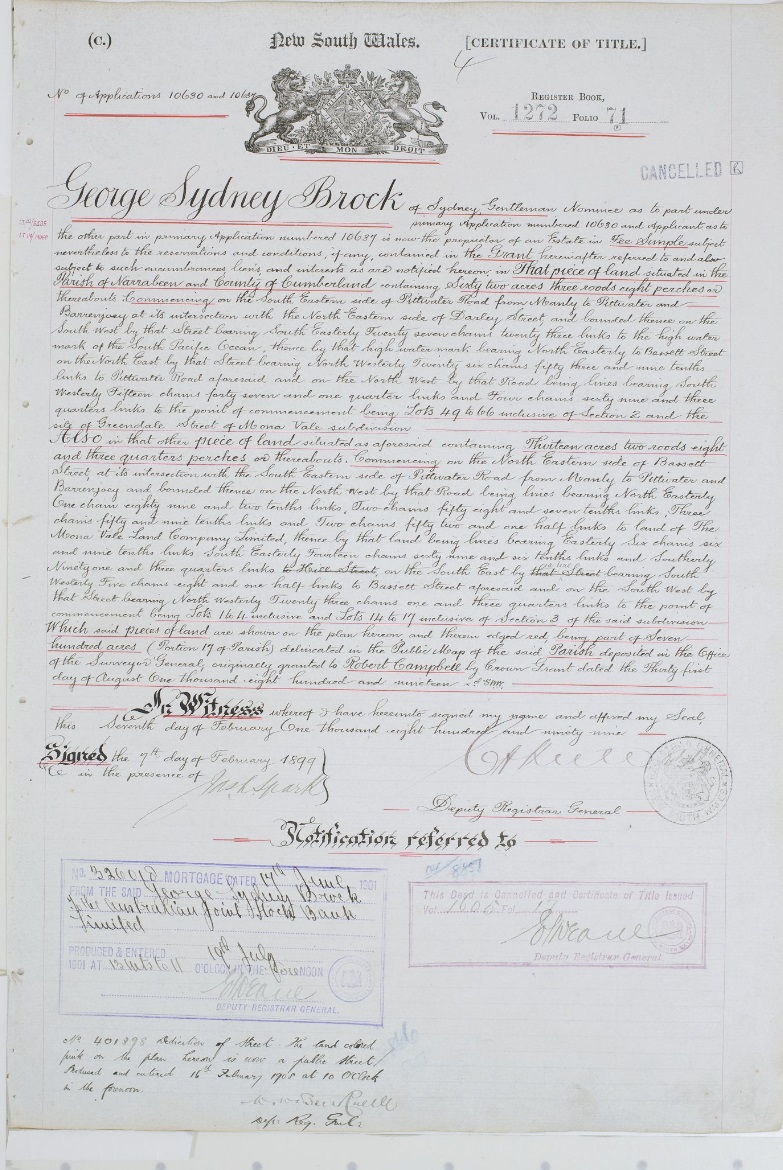 (C.)
New South Wales.
[CERTIFICATE OF TITLE.]
4
No of Applications 10630 and 10637
REGISTER BOOK,
VOL. 1272 FOLIO 71
DIEU ET MON DROIT
CANCELLED
George Sydney Brock of Sydney, Gentleman Nominee as to part under
primary Application numbered 10630 and Applicant as to
the other part in primary Application numbered 10637 is now the proprietor of an Estate in Fee Simple subject
nevertheless to the reservations and conditions, if any, contained in the Grant hereinafter referred to and also
subject to such encumbrances liens, and interests as are notified hereon, in That piece of land situated in the
Parish of Narrabeen and County of Cumberland containing Sixty two acres three roods eight perches or
thereabouts. Commencing on the South Eastern side of Pittwater Road from Manly to Pittwater and
Barrenjoey at its intersection with the North Eastern side of Darley Street, and bounded thence on the
South West by that Street bearing South Easterly Twenty seven chains twenty three links to the high water
mark of the South Pacific Ocean, thence by that high water mark bearing North Easterly to Bassett Street
on the North East by that Street bearing North Westerly Twenty six chains fifty three and nine tenths
links to Pittwater Road aforesaid and on the North West by that Road being lines bearing South
Westerly Fifteen chains forty seven and one quarter links and Four chains sixty nine and three
quarters links to the point of commencement being Lots 49 to 66 inclusive of Section 2 and the
site of Greendale Street of Mona Vale subdivision
Also in that other piece of land situated as aforesaid containing Thirteen acres two roods eight
and three quarters perches or thereabouts. Commencing on the North Eastern side of Bassett
Street, at its intersection with the South Eastern side of Pittwater Road from Manly to Pittwater and
Barrenjoey and bounded thence on the North West by that Road being lines bearing North Easterly
One chain eighty nine and two tenths links, Two chains fifty eight and seven tenths links, Three
chains fifty and nine tenths links and Two chains fifty two and one half links to land of The
Mona Vale Land Company Limited, thence by that land being lines bearing Easterly Six chains six
and nine tenths links South Easterly Fourteen chains sixty nine and six tenths links and Southerly
Ninety one and three quarters links to Hill Street, on the South East by that Street bearing South
Westerly Five chains eight and one half links to Bassett Street aforesaid and on the South West by
that Street bearing North Westerly Twenty three chains one and three quarters links to the point of
commencement being Lots 1 to 4 inclusive and Lots 14 to 17 inclusive of Section 3 of the said subdivision
Which said pieces of land are shown on the plan hereon and therein edged red, being part of Seven
hundred acres (Portion 17 of Parish) delineated in the Public Map of the said Parish deposited in the Office
of the Surveyor General, originally granted to Robert Campbell by Crown Grant dated the Thirty first
day of August One thousand eight hundred and nineteen
In Witness whereof I have hereunto signed my name and affixed my Seal,
this Seventh day of February One thousand eight hundred and ninety nine
Signed the 7th day of February 1899
in the presence of
Jas Spark
Deputy Registrar General
Notification referred to
No. 326018 MORTGAGE DATED 17th June 1901
FROM THE SAID George Sydney Brock
to The Australian Joint Stock Bank
Limited
PRODUCED & ENTERED 19th July
1901 AT 12 mts to 11 O'CLOCK IN THE forenoon
DEPUTY REGISTRAR GENERAL.
This Deed is Cancelled and Certificate of Title Issued
Vol. 1605 Fol.
Deputy Registrar General
No 401898 Dedication of Street The land colored
pink on the plan hereon is now a public street
Produced and entered 16th February 1905 at 10 O'Clock
in the forenoon.
Dep. Reg. Genl.